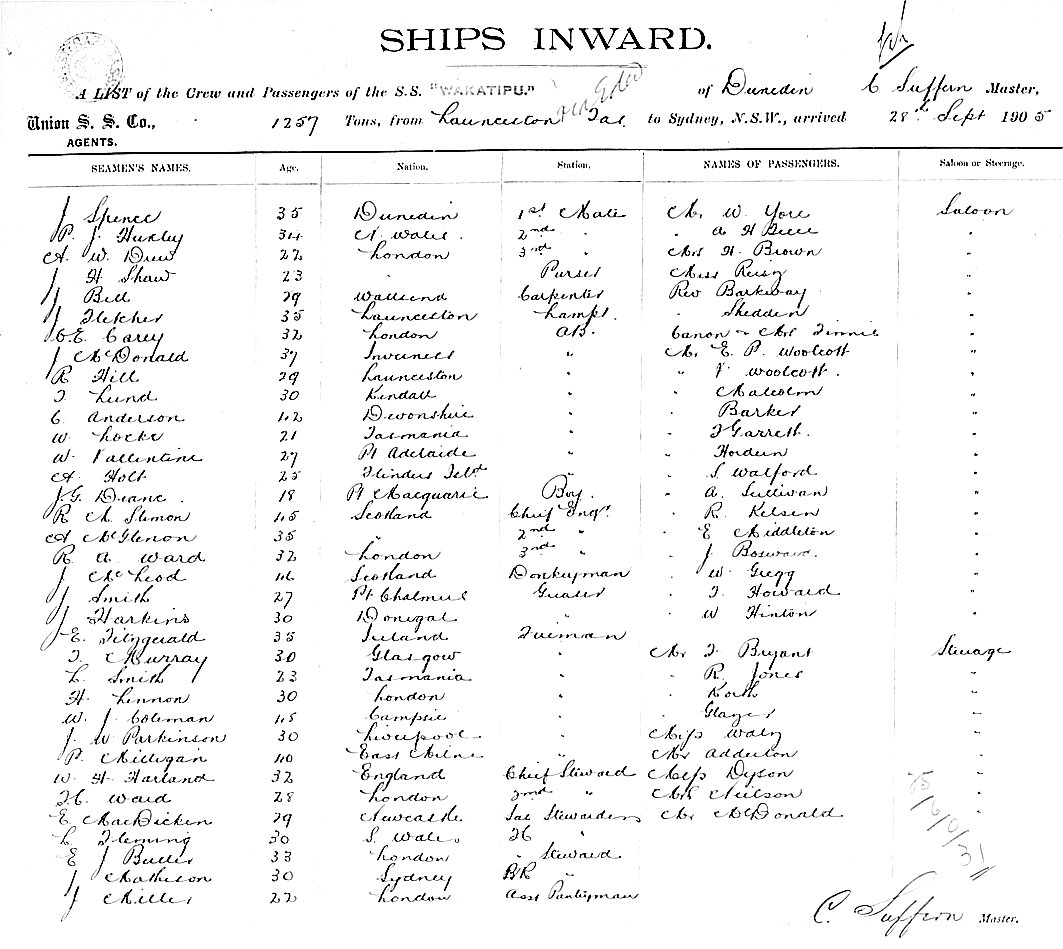 SHIPS INWARD.
A LIST of the Crew and Passengers of the S.S. "WAKATIPU." of Dunedin C Suffern Master,
Union S. S. Co., 1257 Tons, from Launceston Tas. to Sydney, N.S.W., arrived 28th Sept 1905
AGENTS.
SEAMEN'S NAMES. Age. Nation. Station. NAMES OF PASSENGERS. Saloon or Steerage.
J Spence 35 Dunedin 1st Mate Mr W. Yore Saloon
P. J. Huxley 34 N. Wales. 2nd " " A H "
A. W. Drew 22 London 3rd " Mrs H. Brown "
J H Shaw 23 " Purser Miss "
J Bell 29 Wallsend Carpenter Rev Barkway "
J Fletcher 35 Launceston Lamps. " Shedden "
C. E. Carey 32 London AB. Canon & Mrs Finnis "
J McDonald 37 Inverness " Mr E. P. Woolcott "
R Hill 29 Launceston " " V. Woolcott. "
T Lund 30 Kendall " " Malcolm "
C. Anderson 42 Devonshire " " Barker "
W. Locke 21 Tasmania " " T Garrett. "
W. Vallentine 27 Pt Adelaide " " Hordern "
A. Holt 25 Flinders Isld " " S. Walford "
J. G. Deane. 18 Pt Macquarie Boy. " A. Sullivan "
R M Slimon 45 Scotland Chief Engr. " R. Kelsen "
A McGlenon 35 " 2nd " " E Middleton "
R. A. Ward 32 London 3rd " " J Bosward. "
J McLeod 46 Scotland Donkeyman " W. Gregg "
J Smith 27 Pt Chalmers Greaser " T. Howard "
J Harkins 30 Donegal " " W Hinton "
E. Fitzgerald 35 Ireland Fireman
T. Murray 30 Glasgow " Mr T Bryant Steerage
L. Smith 23 Tasmania " " R. Jones "
H. Lennon 30 London " " Korth "
W. J. Coleman 45 Campsie " " Glazer "
J. W Parkinson 30 Liverpool " Miss "
P. Milligan 40 East Milne " Mr Adderton "
W. H. Harland 32 England Chief Steward Miss Dyson "
H. Ward 28 London 2nd " Mrs Neilson "
E. MacDicken 29 Newcastle Sal Stewardess Mr McDonald "
L. Fleming 30 S. Wales "
E J Butler 33 London " Steward
J Matheson 30 Sydney BR "
J Miller 22 London Asst Pantryman
C. Suffern Master.